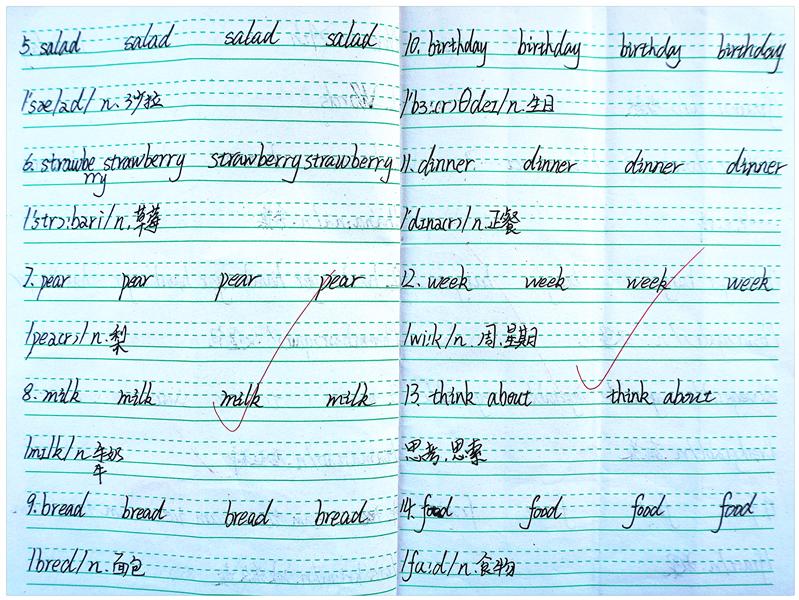 5. salad salad salad salad
/'sæləd/ n. 沙拉
6. strawbe strawberry strawberry strawberry
rry
/'strɔ:bəri/ n. 草莓
7. pear pear pear pear
/peə(r)/ n. 梨
8. milk milk milk milk
/mɪlk/ n. 牛奶
牛
9. bread bread bread bread
/bred/ n. 面包
10. birthday birthday birthday birthday
/'bɜ:(r)θdeɪ/ n. 生日
11. dinner dinner dinner dinner
/'dɪnə(r)/ n. 正餐
12. week week week week
/wi:k/ n. 周,星期
13. think about think about
思考,思索
14. food food food food
/fu:d/ n. 食物